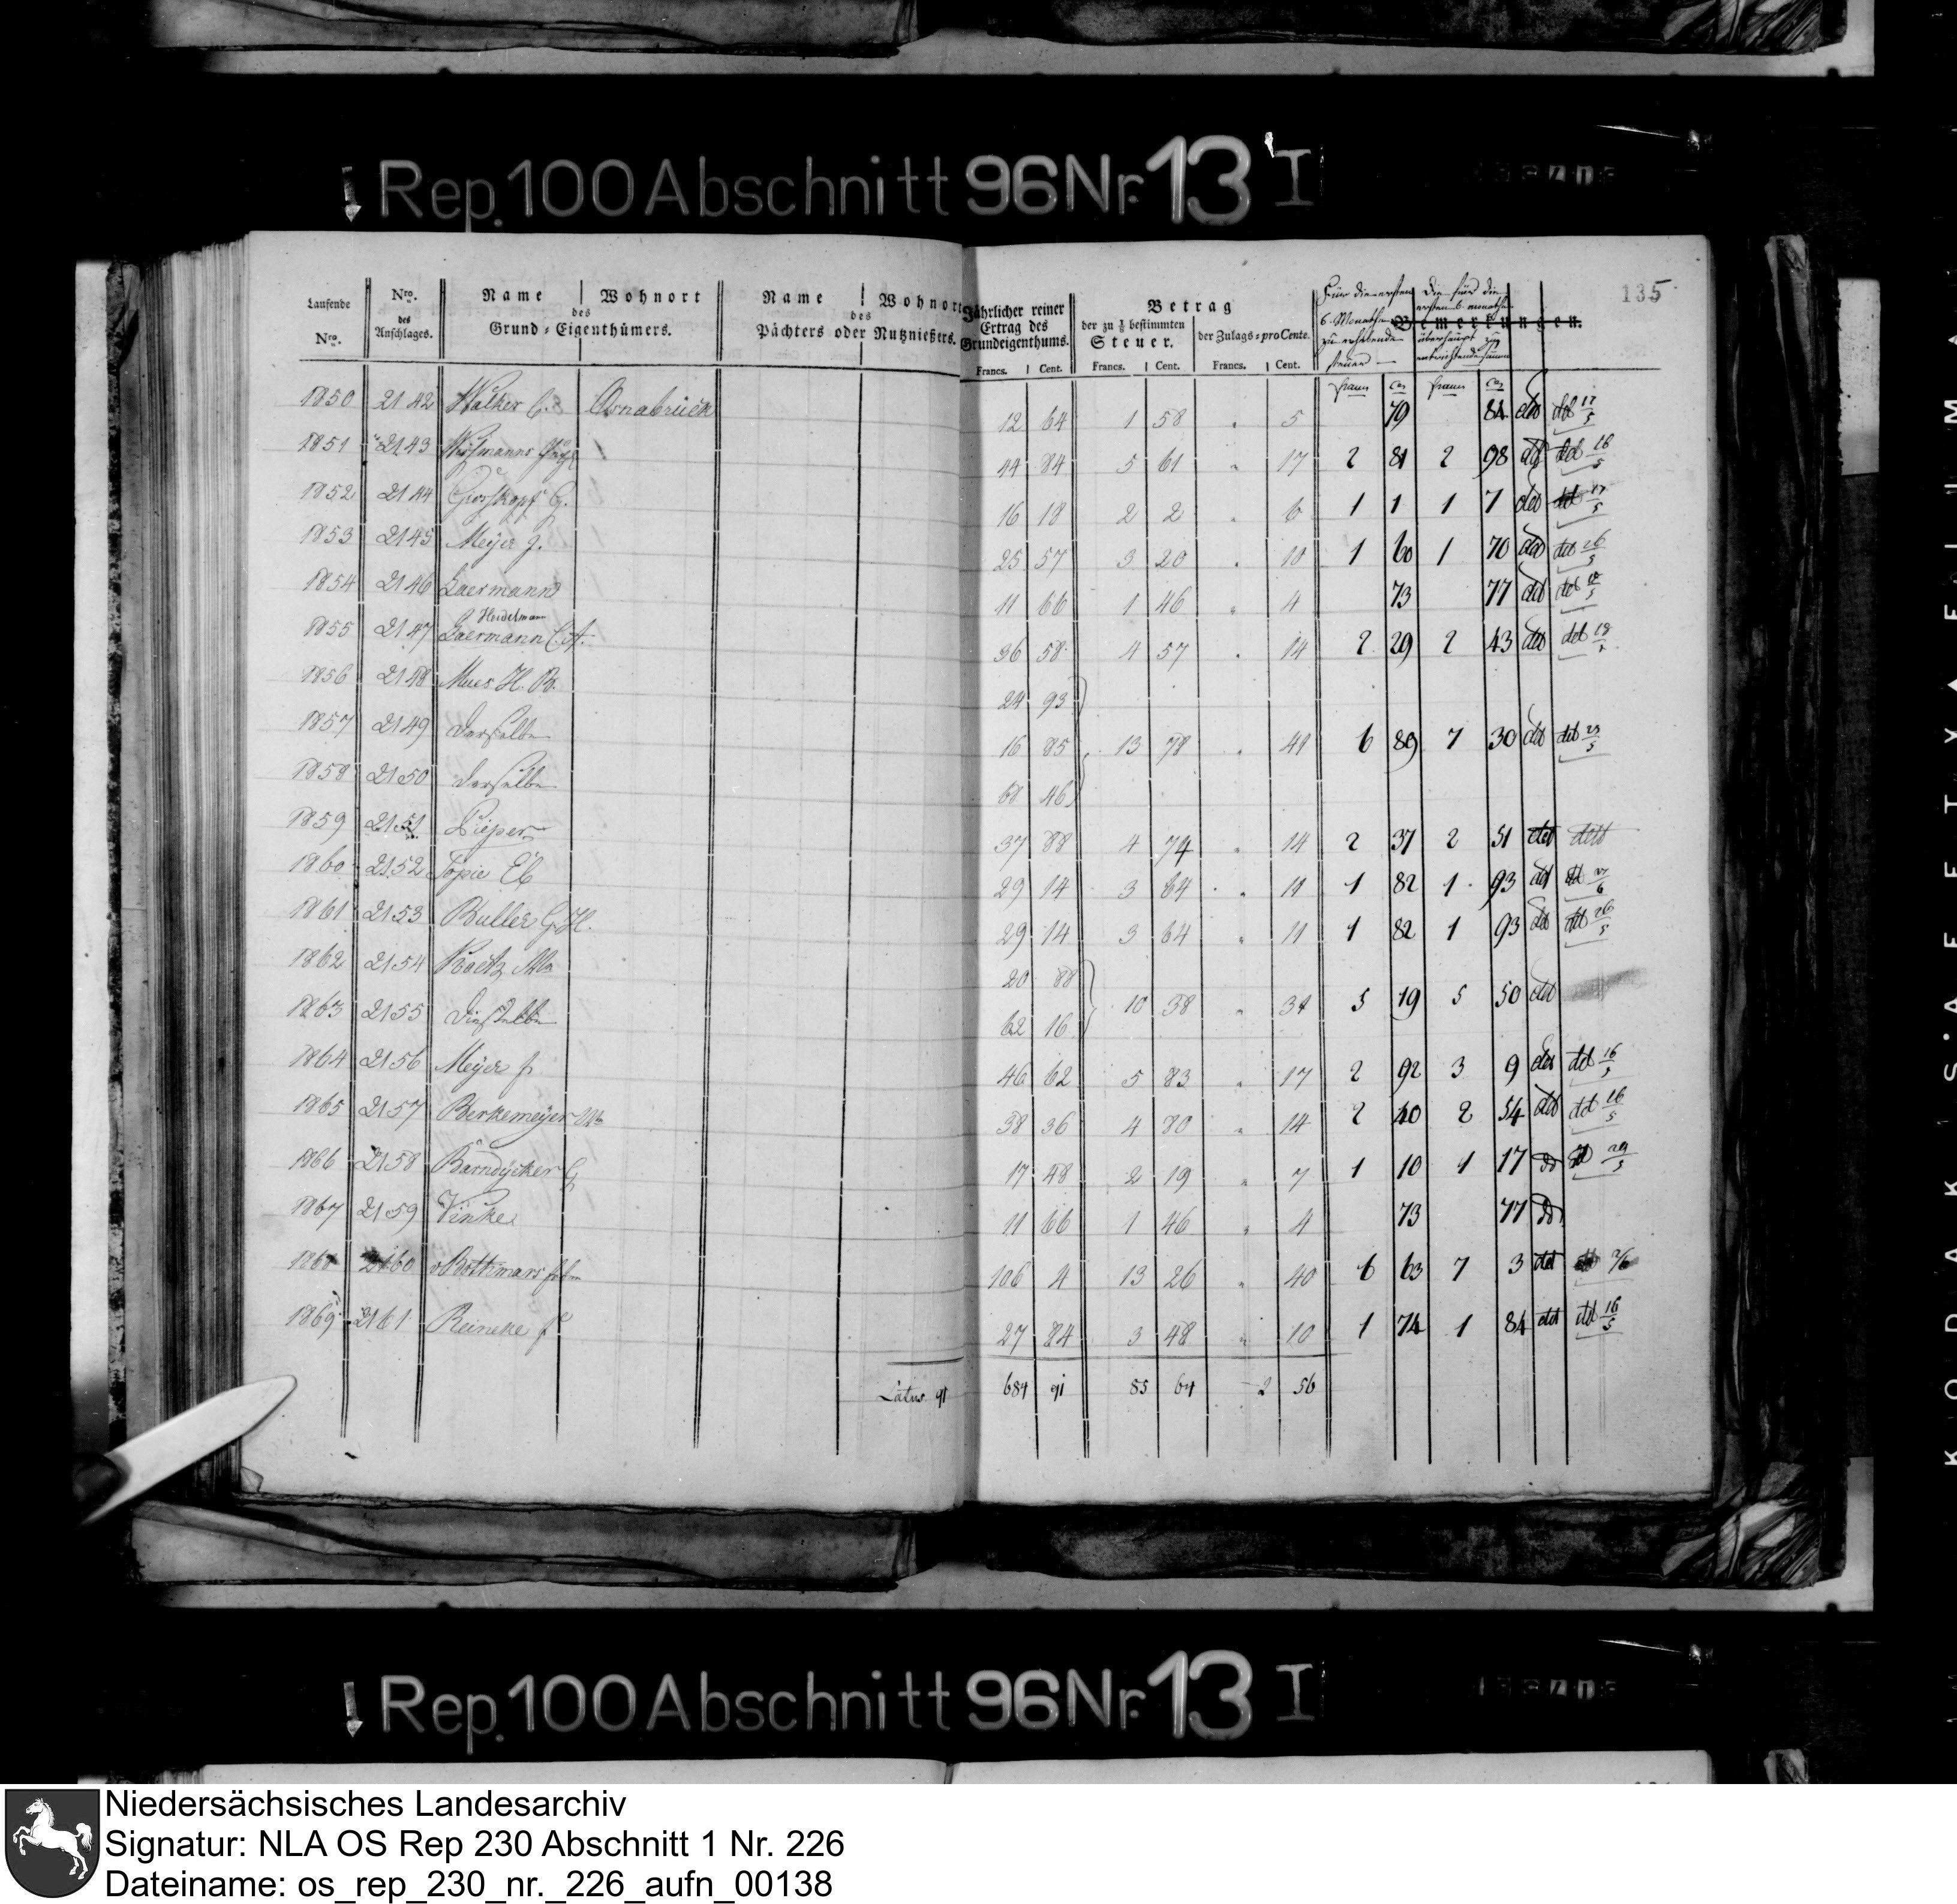 Rep. 100 Abschnitt 96 Nr. 13 I
135
Laufende Nro. | Nro. des Anschlages. | Name | Wohnort des Grund-Eigenthümers. | Name | Wohnort des Pächters oder Nutznießers. | Jährlicher reiner Ertrag des Grundeigenthums. | Betrag der zu 1/8 bestimmten Steuer. | der Zulags-pro Cente. | Für die ersten 6. Monathe zu erhebende Steuer | Die für die ersten 6 monathe überhaupt zu entrichtende Summe | Bemerkungen.
Francs. | Cent. | Francs. | Cent. | Francs. | Cent. | Francs | Cs | Francs | Cs
1850 2142 Walker C. Osnabrück 12 64 1 58 " 5 79 84 ded ded 17/5
1851 2143 44 84 5 61 " 17 2 81 2 98 ded 16/5
1852 2144 Groskopf G. 16 18 2 2 " 6 1 1 1 7 ded ded 17/5
1853 2145 Meyer J. 25 57 3 20 " 10 1 60 1 70 ded ded 26/5
1854 2146 Laermann 11 66 1 46 " 4 73 77 ded ded 18/5
Heidelman
1855 2147 Laermann C. A. 36 58 4 57 " 14 2 29 2 43 ded ded 18/5
1856 2148 Mues H. B. 24 93
1857 2149 Derselbe 16 85 13 78 " 41 6 89 7 30 ded ded 23/5
1858 2150 Derselbe 68 46
1859 2151 Pieper 37 88 4 74 " 14 2 37 2 51 ded ded
1860 2152 Topie 29 14 3 64 " 11 1 82 1 93 ded ded
1861 2153 Buller G. H. 29 14 3 64 " 11 1 82 1 93 ded ded 26/5
1862 2154 20 88
1863 2155 Dieselbe 62 16 10 38 " 31 5 19 5 50 ded
1864 2156 Meyer 46 62 5 83 " 17 2 92 3 9 ded ded 16/5
1865 2157 Berkemeyer 38 36 4 80 " 14 2 40 2 54 ded ded 16/5
1866 2158 17 48 2 19 " 7 1 10 1 17
1867 2159 Vinke 11 66 1 46 " 4 73 77
1868 2160 v Bothmars 106 4 13 26 " 40 6 63 7 3 ded 2/6
1869 2161 Reineke 27 84 3 48 " 10 1 74 1 84 ded ded 16/5
Latus 684 91 85 64 2 56
Rep. 100 Abschnitt 96 Nr. 13 I
Niedersächsisches Landesarchiv
Signatur: NLA OS Rep 230 Abschnitt 1 Nr. 226
Dateiname: os_rep_230_nr._226_aufn_00138